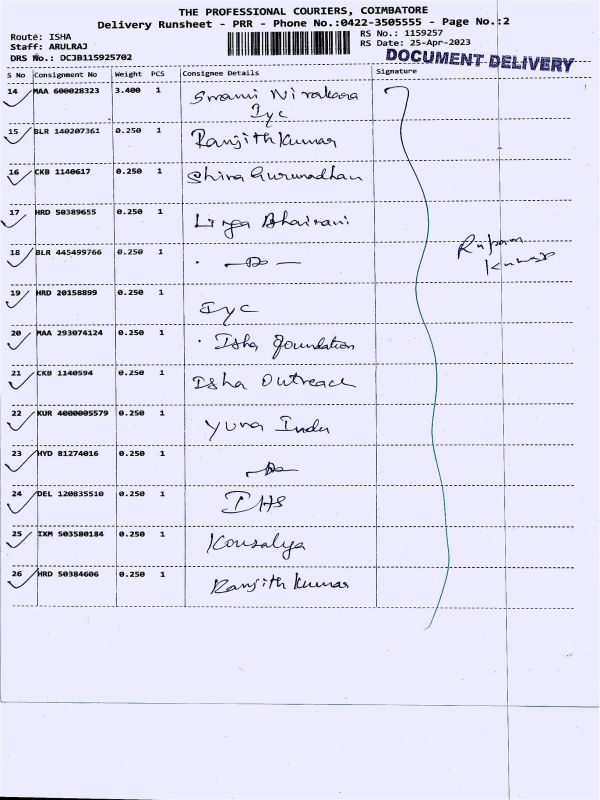 THE PROFESSIONAL COURIERS, COIMBATORE
Delivery Runsheet - PRR - Phone No.:0422-3505555 - Page No.:2
Route: ISHA
Staff: ARULRAJ
DRS No.: DCJB115925702
RS No.: 1159257
RS Date: 25-Apr-2023
DOCUMENT DELIVERY
S No Consignment No Weight PCS Consignee Details Signature
14 MAA 600028323 3.400 1 Swami Nirakara
Iyc
15 BLR 140207361 0.250 1 Ranjith Kumar
16 CKB 1140617 0.250 1 Shiva Gurunadhan
17 HRD 50389655 0.250 1 Linga Bhairavi
18 BLR 445499766 0.250 1 - Do -
19 HRD 20158899 0.250 1 Iyc
20 MAA 293074124 0.250 1 Isha foundation
21 CKB 1140594 0.250 1 Isha Outreach
22 KUR 4000005579 0.250 1 Yuva Indu
23 HYD 81274016 0.250 1 - Do -
24 DEL 120835510 0.250 1 IHS
25 IXM 503580184 0.250 1 Kousalya
26 HRD 50384606 0.250 1 Ranjith Kumar
Kumar